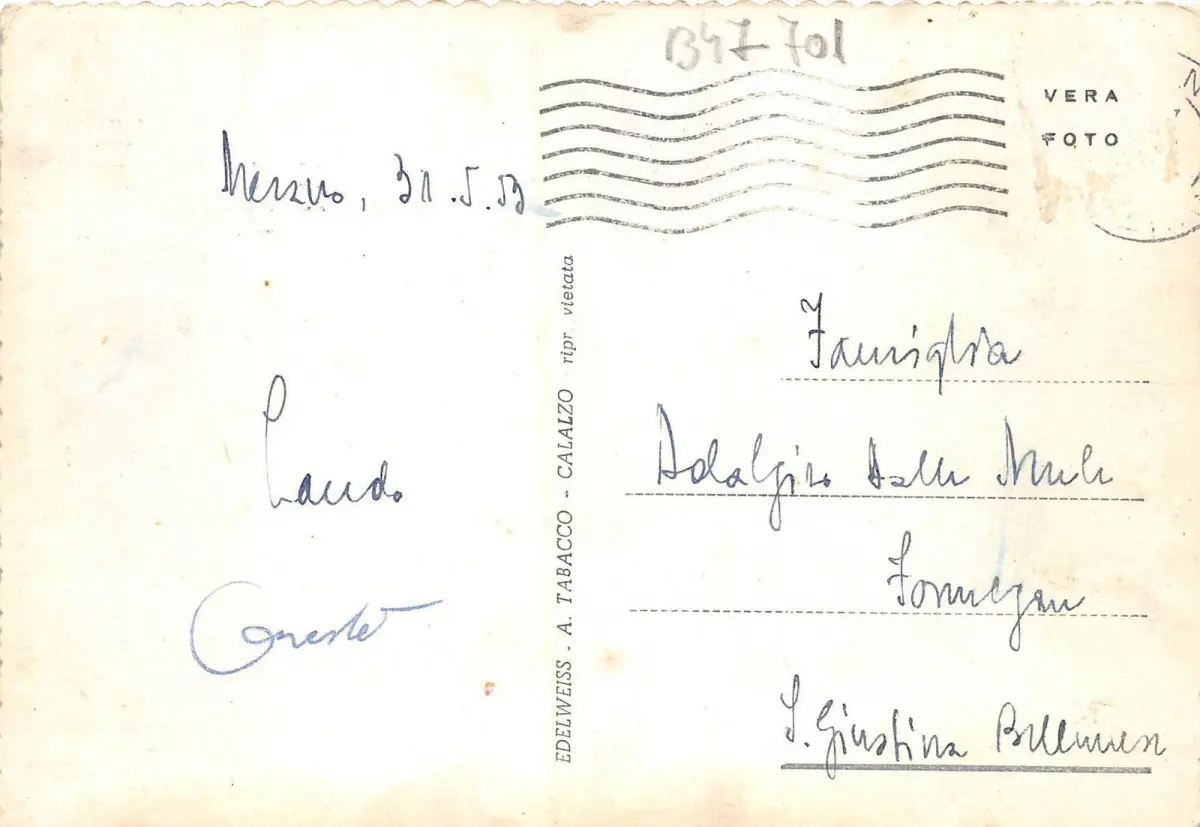 B47 701
VERA
FOTO
31.5.53
Famiglia
Adalgiso Dalle Mule
Formegan
S. Giustina Bellunese
EDELWEISS - A. TABACCO - CALALZO ripr. vietata
Oreste